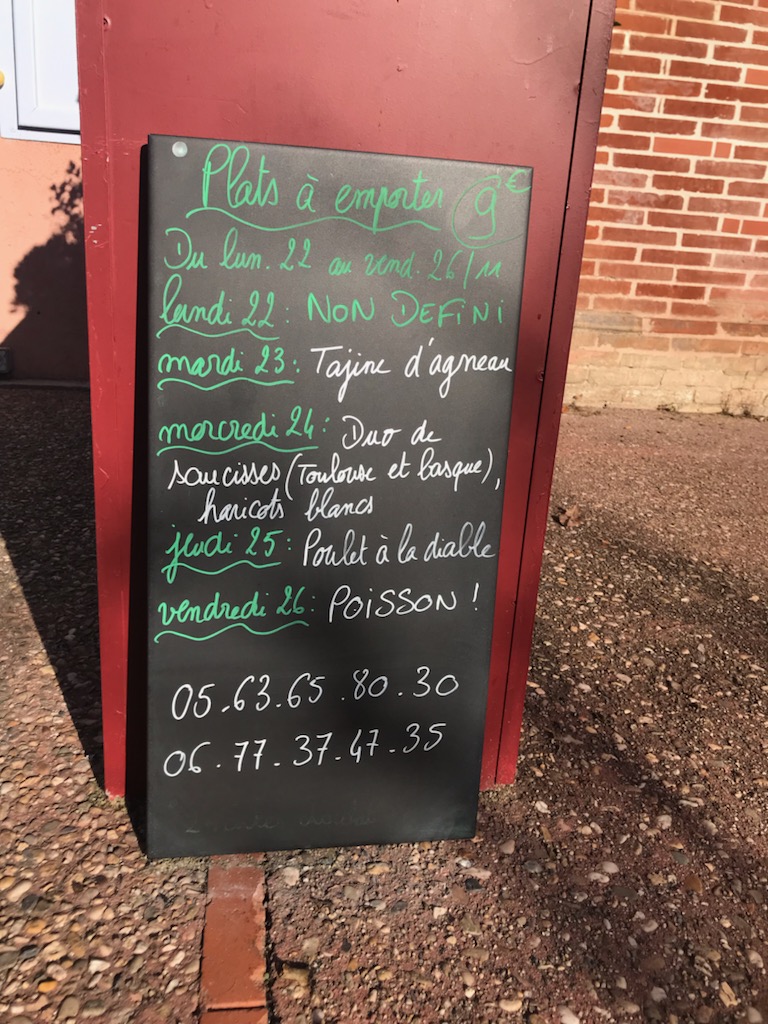 Plats à emporter 9€
Du lun. 22 au vend. 26/11
lundi 22 : NON DEFINI
mardi 23 : Tajine d'agneau
mercredi 24 : Duo de
saucisses (Toulouse et basque),
haricots blancs
jeudi 25 : Poulet à la diable
vendredi 26 : POISSON !
05.63.65.80.30
06.77.37.47.35